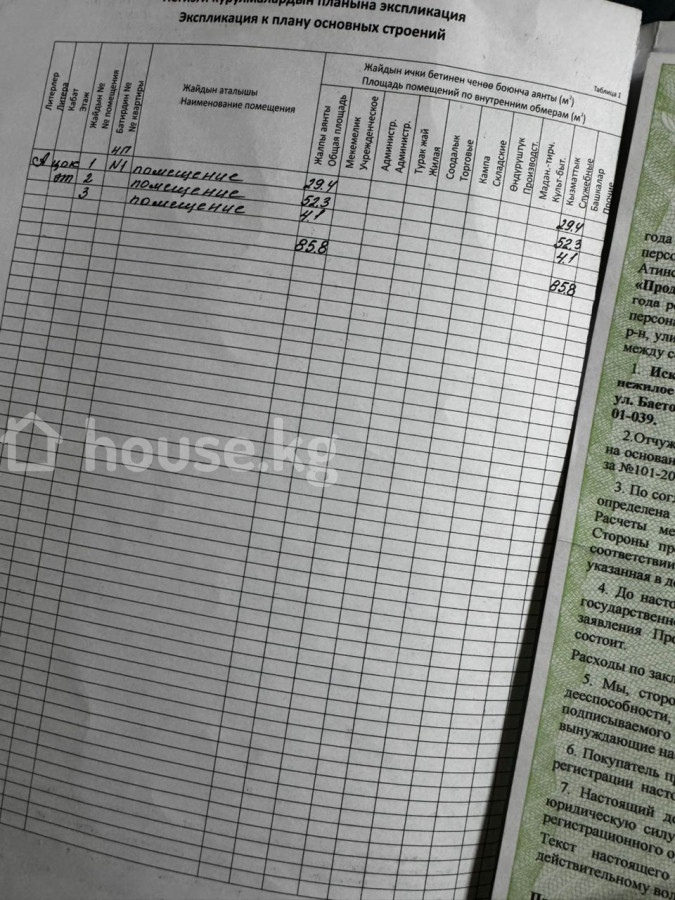 курулмалардын планына экспликация
Экспликация к плану основных строений
Таблица 1
Литерлер
Литера
Кабат
Этаж
Жайдын №
№ помещения
Батирдин №
№ квартиры
Жайдын аталышы
Наименование помещения
Жайдын ички бетинен ченөө боюнча аянты (м²)
Площадь помещений по внутренним обмерам (м²)
Жалпы аянты
Общая площадь
Мекемелик
Учрежденческое
Администр.
Администр.
Турак жай
Жилая
Соодалык
Торговые
Кампа
Складские
Өндүрүштүк
Производст.
Мадан.-тирч.
Культ-быт.
Кызматтык
Служебные
Башкалар
Прочие
НП
А цок 1 №1 помещение 29.4 29.4
эт 2 помещение 52.3 52.3
3 помещение 4.1 4.1
85.8 85.8
house.kg
года
персо
Атинс
«Прод
года р
персона
р-н, ули
между с
1. Иск
нежилое
ул. Баето
01-039.
2.Отчуж
на основан
за №101-20
3. По сог
определена
Расчеты ме
Стороны пр
соответстви
указанная в д
4. До насто
государственн
заявления Пре
состоит.
Расходы по закл
5. Мы, сторо
дееспособности,
подписываемого
вынуждающие на
6. Покупатель п
регистрации насто
7. Настоящий до
юридическую силу
регистрационного о
Текст настоящего
действительному вол